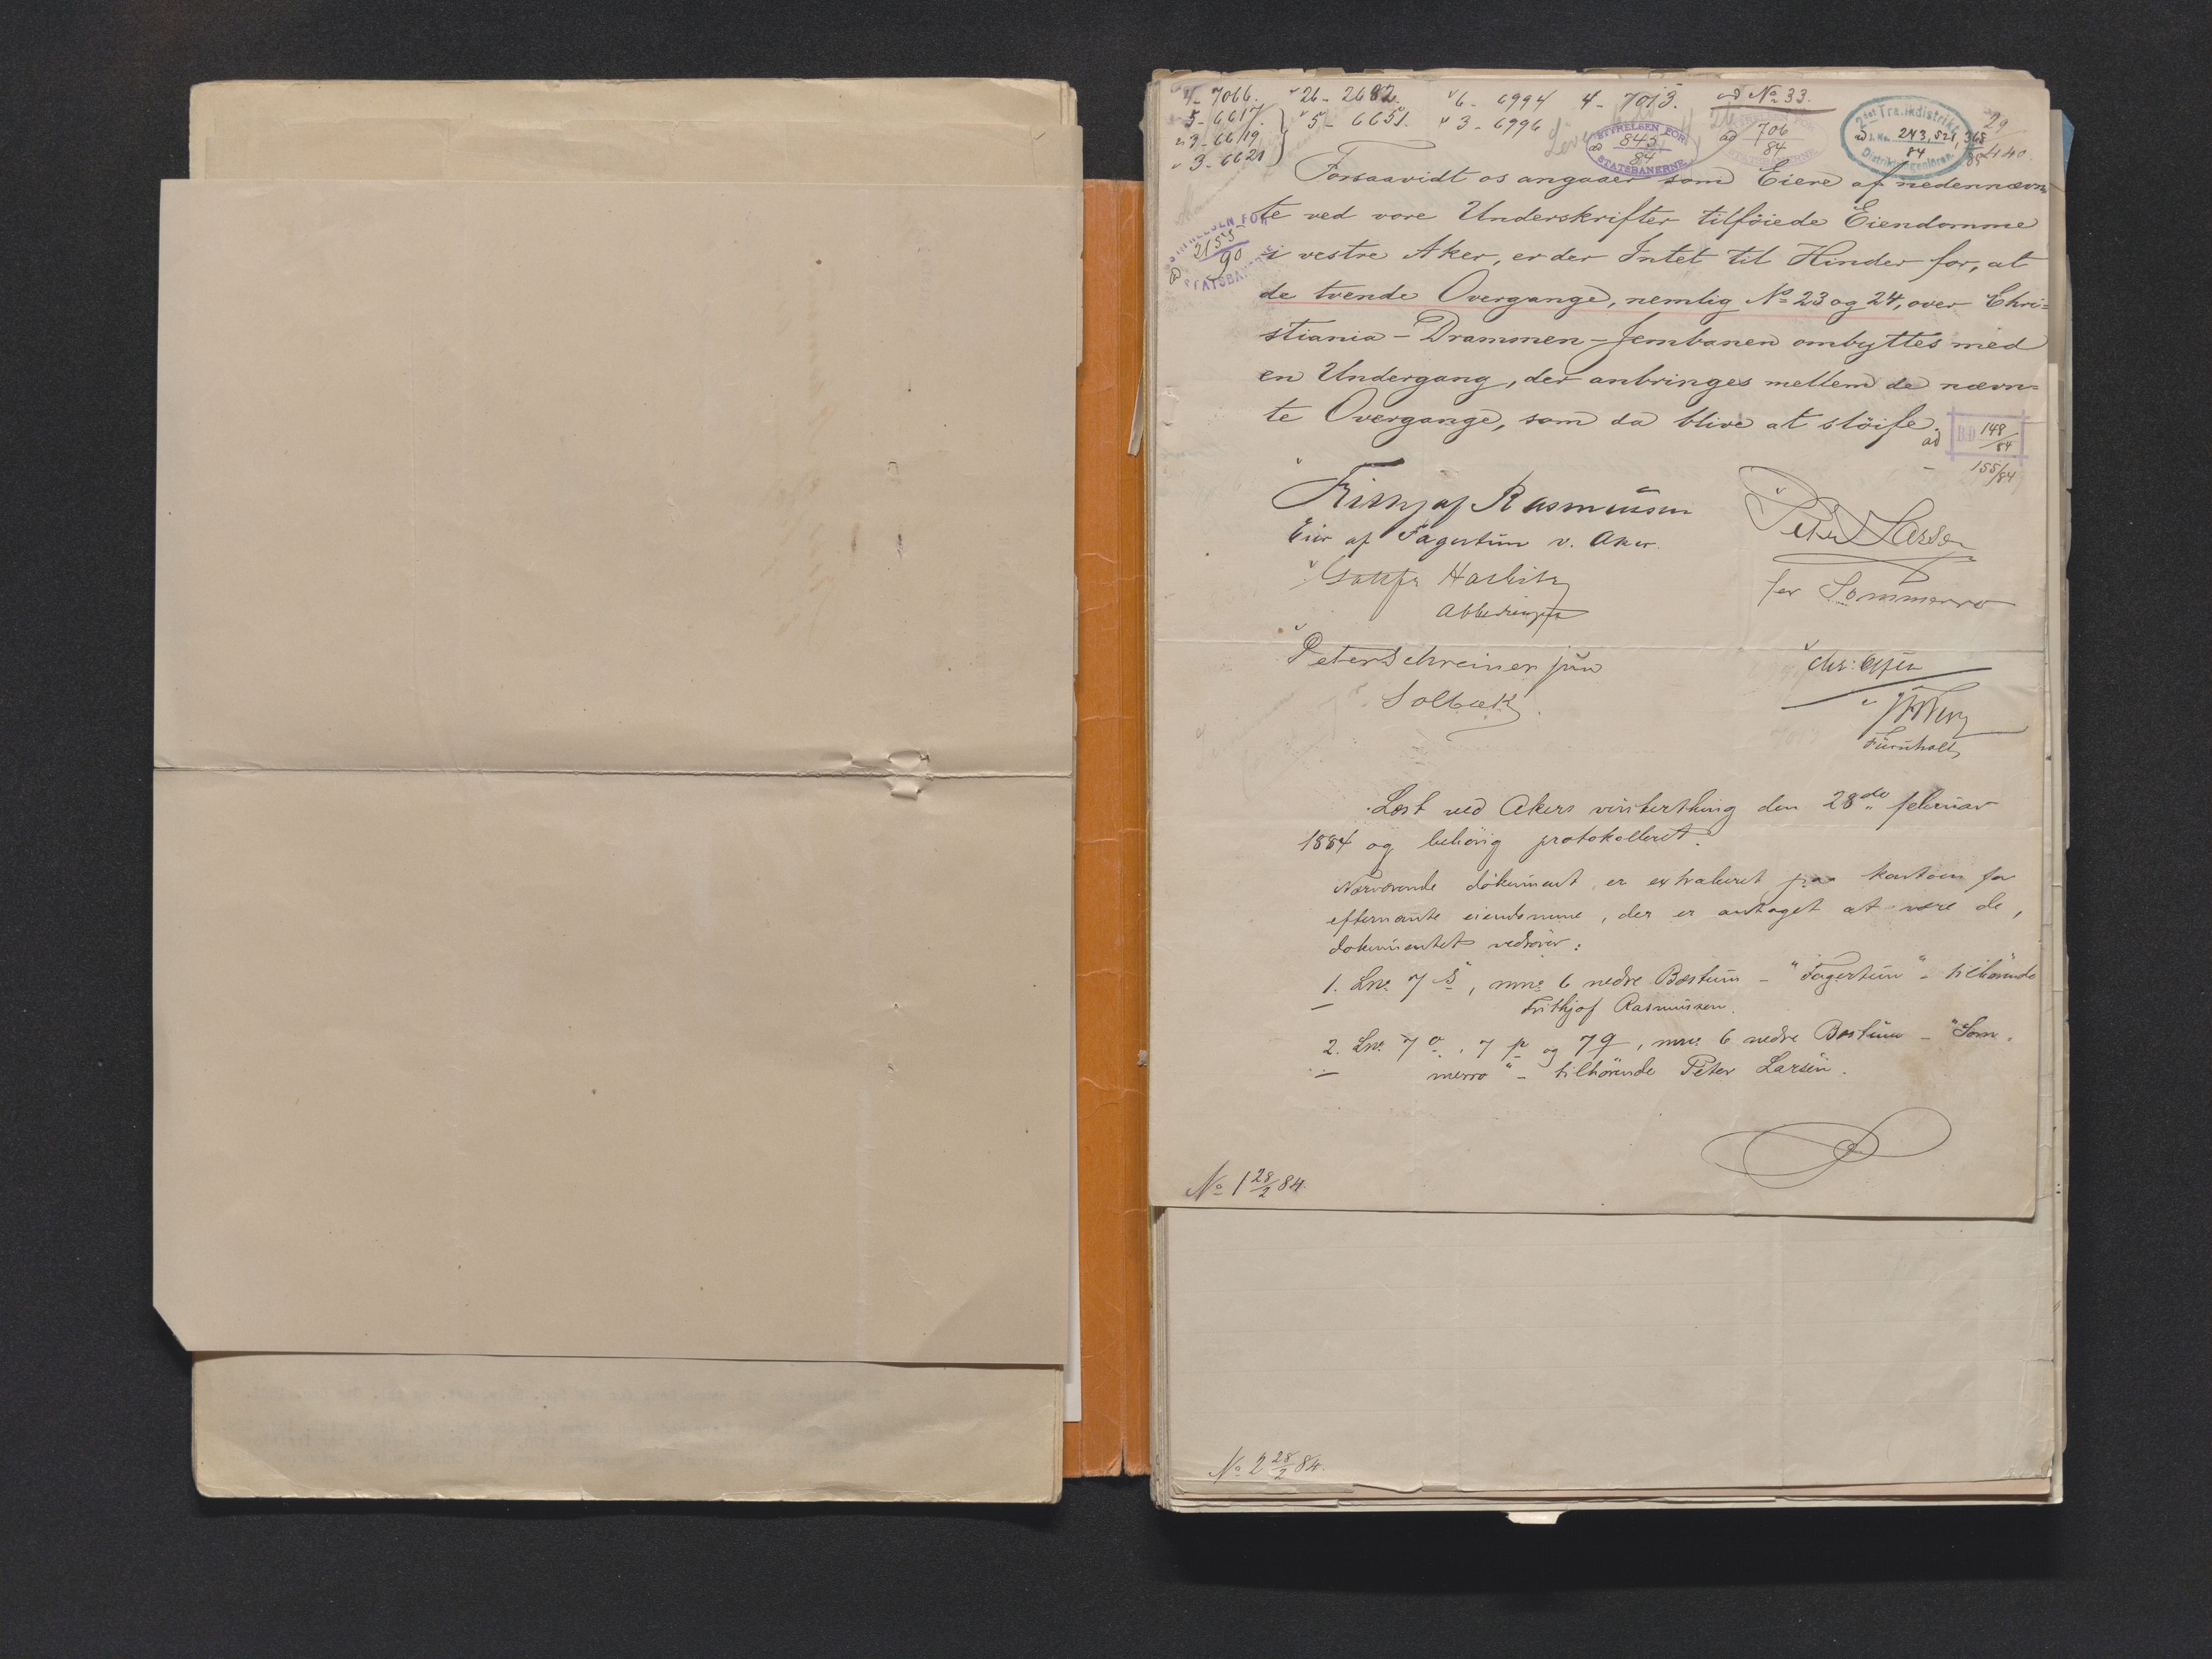 4- 7066. 26- 2682. 6- 6994 4- 7013. ad No 33.
5- 6617. 5- 6651. 3- 6996
3- 6619
3- 6621
STYRELSEN FOR
ad 845/84
STATSBANERNE
ad 706/84
STATSBANERNE
2det Trafikdistrikt
ad J.No. 243, 521, 365/85
84
Distriktsingeniøren
29/440
Forsaavidt os angaaer som Eiere af nedennævn-
te ved vore Underskrifter tilføiede Eiendomme
i vestre Aker, er der Intet til Hinder for, at
de tvende Overgange, nemlig No 23 og 24, over Chri=
stiania - Drammen - Jernbanen ombyttes med
en Undergang, der anbringes mellem de nævn=
te Overgange, som da blive at sløife.
STYRELSEN FOR
ad 2155/90
STATSBANERNE
ad B.D. 148/84
- 155/84
Frithjof Rasmussen
Eier af Fagertun v. Aker.
Peter Larsen
for Sommerro
Harbitz
Abbediengen
Peter Schreiner jun
Solbæk.
Chr:
Furuholt
Læst ved Akers vinterthing den 28de februar
1884 og behörig protokolleret.
Nærværende dokument er extraheret paa kontoen for
efternævnte eiendomme, der er antaget at være de,
dokumentet vedrører:
1. Lno. 7 s, mno. 6 nedre Bæstum - "Fagertun" - tilhörende
Frithjof Rasmussen.
2. Lno. 7 o, 7 p og 7 q, mno. 6 nedre Bæstum - "Som-
merro" - tilhörende Peter Larsen.
No 1 28/2 84.
No 2 28/2 84.